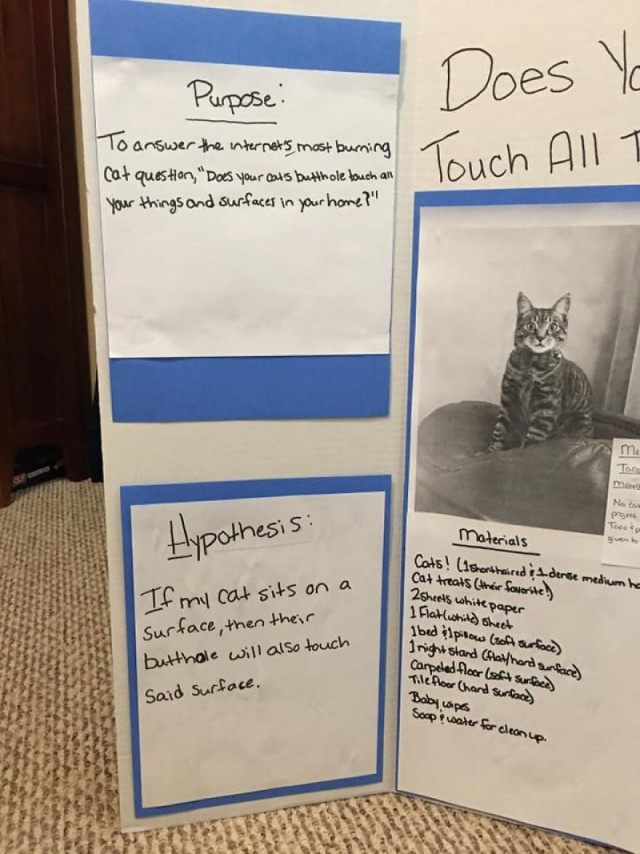 Purpose:
To answer the internet's most burning
Cat question, "Does your cats butthole touch all
your things and surfaces in your home?"
Hypothesis:
If my cat sits on a
surface, then their
butthole will also touch
Said surface.
Does
Touch All
Materials
Cats! (1 shorthaired & 1 dense medium
Cat treats (their favorite!)
2 sheets white paper
1 Flat (white) sheet
1 bed & 1 pillow (soft surface)
1 night stand (flat/hard surface)
Carpeted floor (soft surface)
Tile floor (hard surface)
Baby wipes
Soap & water for clean up.
No
project
given to